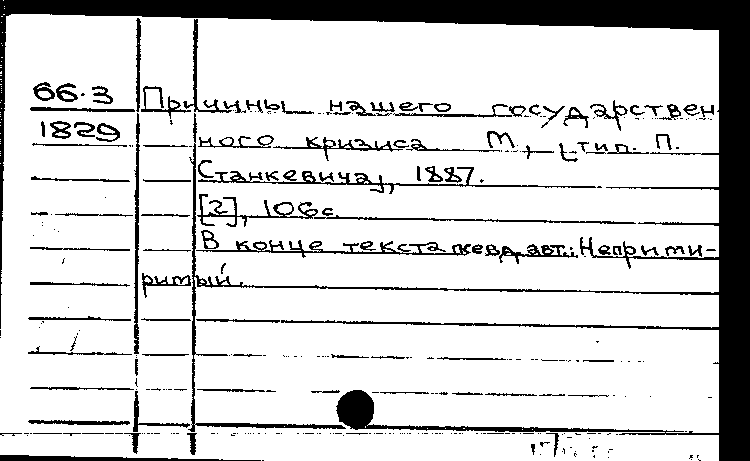 66.3 Причины нашего государствен-
1829 ного кризиса М, [тип. П.
Станкевича], 1887.
[2], 106с.
В конце текста псевд. авт.: Неприми-
римый.